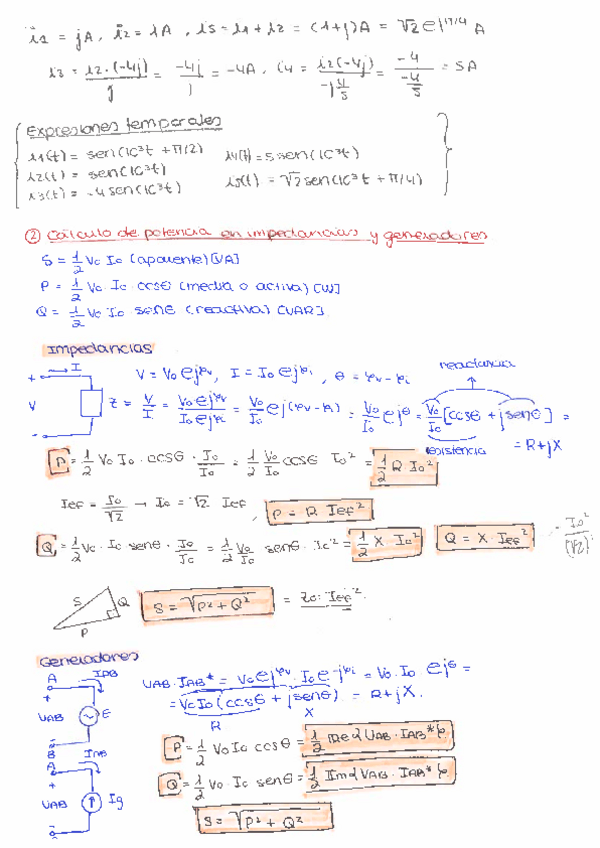 i1 = jA, i2 = 1A, i5 = i1 + i2 = (1+j)A = √2 e^jπ/4 A
i3 = i2·(-4j)/j = -4j/j = -4A, i4 = i2(-4j)/(-j 4/5) = -4/(-4/5) = 5A
Expresiones temporales
i1(t) = sen(10³t + π/2)   i4(t) = 5 sen(10³t)
i2(t) = sen(10³t)
i3(t) = -4 sen(10³t)   i5(t) = √2 sen(10³t + π/4)
② Cálculo de potencia en impedancias y generadores
S = 1/2 V0 I0 (aparente) [VA]
P = 1/2 V0·I0 cosθ (media o activa) [W]
Q = 1/2 V0 I0 senθ (reactiva) [VAR]
Impedancias
reactancia
V = V0 e^jφv, I = I0 e^jφi, θ = φv - φi
+ I V - Z = V/I = V0 e^jφv / I0 e^jφi = V0/I0 e^j(φv - φi) = V0/I0 e^jθ = V0/I0 [cosθ + j senθ] =
resistencia = R + jX
P = 1/2 V0 I0 · cosθ · I0/I0 = 1/2 V0/I0 cosθ I0² = 1/2 R I0²
Ief = I0/√2 → I0 = √2 Ief, P = R Ief²
Q = 1/2 V0 · I0 senθ · I0/I0 = 1/2 V0/I0 senθ · I0² = 1/2 X I0²   Q = X · Ief²   I0²/(√2)
S Q P   S = √P² + Q² = Z0 · Ief².
Generadores
A IAB + UAB E - B
UAB·IAB* = V0 e^jφv · I0 e^-jφi = V0·I0 e^jθ =
= V0 I0 (cosθ + j senθ) = R + jX.
R X
A IAB + UAB Ig -
P = 1/2 V0 I0 cosθ = 1/2 Re{UAB · IAB*}
Q = 1/2 V0 · I0 senθ = 1/2 Im{UAB · IAB*}
S = √P² + Q²